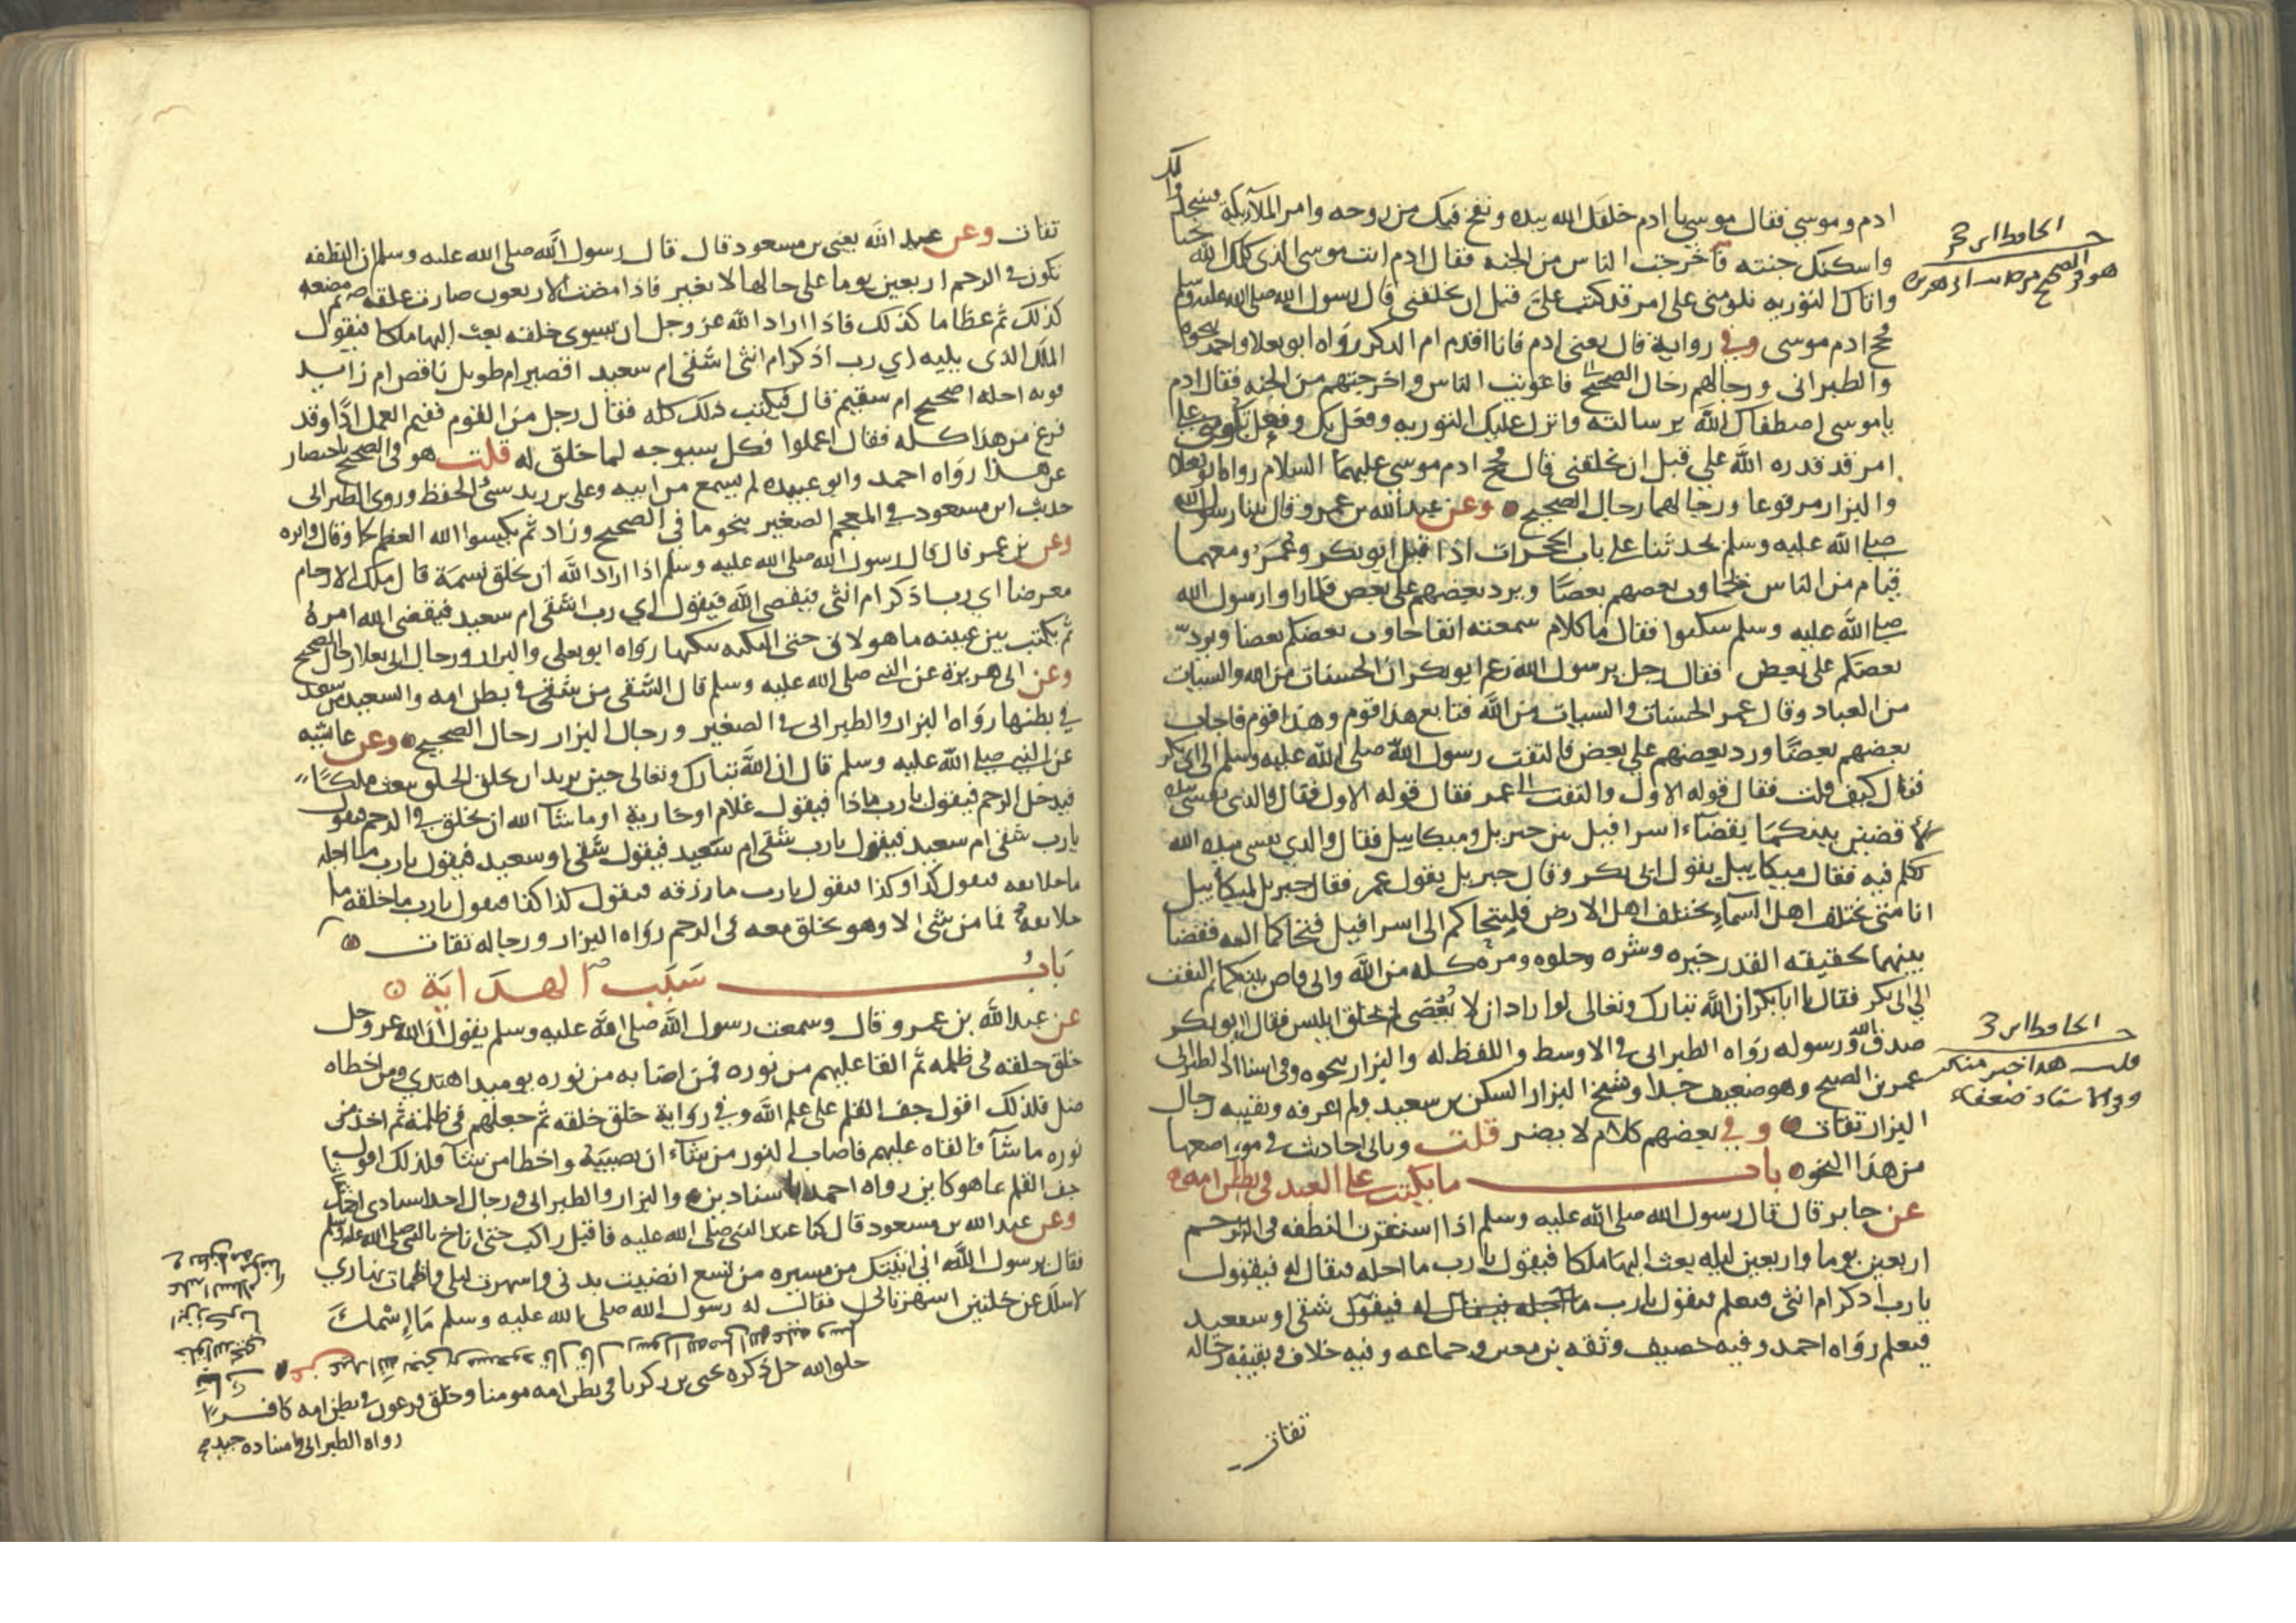 ادم وموسي فقال موسي يا ادم خلقك الله بيده ونفخ فيك من روحه وامر الملايكة فسجدوا لك
واسكنك جنته فاخرجت الناس من الجنه فقال ادم انت موسى الذى كلمك الله نجيا
واتاك التوريه تلومني على امر قد كتب علي قبل ان يخلقني قال رسول الله صلى الله عليه وسلم
فحج ادم موسى وفي رواية قال يعنى ادم فانا اقدم ام الذكر رواه ابو يعلا واحمد بنحوه
والطبرانى ورجالهم رجال الصحيح فاغويت الناس واخرجتهم من الجنه فقال ادم
ياموسى اصطفاك الله برسالته وانزل عليك التوريه وفعل بك وفعل تلومني على
امر قد قدره الله علي قبل ان يخلقني قال فحج ادم موسى عليهما السلام رواه ابو يعلا
والبزار مرفوعا ورجالهما رجال الصحيح وعن عبد الله بن عمرو قال بينا رسول الله
صلى الله عليه وسلم يحدثنا على باب الحجرات اذ اقبل ابو بكر وعمر ومعهما
قيام من الناس يجاوب بعضهم بعضا ويرد بعضهم على بعض فلما راوا رسول الله
صلى الله عليه وسلم سكتوا فقال ما كلام سمعته انفا جاوب بعضكم بعضا ويرد
بعضكم على بعض فقال رجل يرسول الله زعم ابو بكر ان الحسنات من الله والسيات
من العباد وقال عمر الحسنات والسيات من الله فتابع هذا قوم وهذا قوم فاجاب
بعضهم بعضا ورد بعضهم علي بعض فالتفت رسول الله صلى الله عليه وسلم الى ابى بكر
فقال كيف قلت فقال قوله الاول والتفت الى عمر فقال قوله الاول فقال والذى نفسى بيده
لاقضين بينكما بقضاء اسرافيل بين جبريل وميكاييل فقال والذي نفسى بيده الله
تكلم فيه فقال ميكاييل بقول ابى بكر وقال جبريل بقول عمر فقال جبريل لميكاييل
انا متى نختلف اهل السماء يختلف اهل الارض فليتحاكم الى اسرافيل فتحاكما اليه فقضا
بينهما بحقيقه القدر خيره وشره وحلوه ومره كله من الله والى قاض بينكما ثم التفت
الي ابى بكر فقال يا ابا بكر ان الله تبارك وتعالى لو اراد ان لا يعصى لم يخلق ابليس فقال ابو بكر
صدق الله ورسوله رواه الطبرانى فى الاوسط واللفظ له والبزار بنحوه وفى اسناد الطبرانى
عمر بن الصبح وهو ضعيف جدا وشيخ البزار السكن بن سعيد ولم اعرفه وبقيه رجال
البزار ثقات وفي بعضهم كلام لا يضر قلت وتاتى احاديث في مواضعها
من هذا النحو باب ما يكتب على العبد في بطن امه
عن جابر قال قال رسول الله صلى الله عليه وسلم اذا استقرت النطفه في الرحم
اربعين يوما واربعين ليله يعث اليها ملكا فيقول يا رب ما اجله فيقال له فيقول
يا رب اذكر ام انثى فيعلم فيقول يا رب ما اجله فيقال له فيقول شقى او سعيد
فيعلم رواه احمد وفيه خصيف وثقه بن معين وجماعه وفيه خلاف وبقيه رجاله
ثقات
الحافظ ابن حجر
هو في الصحيح من حديث ابى هريره
الحافظ ابن حجر
قلت هذا خبر منكر
وفى الاسناد ضعفاء
ثقات وعن عبد الله يعنى بن مسعود قال قال رسول الله صلى الله عليه وسلم ان النطفه
تكون في الرحم اربعين يوما على حالها لا تغير فاذا مضت الاربعون صارت علقه ثم مضغه
كذلك ثم عظاما كذلك فاذا اراد الله عز وجل ان يسوى خلقه بعث اليها ملكا فيقول
الملك الذى يليه اي رب اذكر ام انثى اشقى ام سعيد اقصير ام طويل ناقص ام زايد
قوته اجله اصحيح ام سقيم قال فيكتب ذلك كله فقال رجل من القوم ففيم العمل اذا وقد
فرغ من هذا كله فقال اعملوا فكل سيوجه لما خلق له قلت هو فى الصحيح باختصار
عن هذا رواه احمد وابو عبيده لم يسمع من ابيه وعلى بن زيد سئ الحفظ وروى الطبرانى
حديث ابن مسعود في المعجم الصغير بنحو ما في الصحيح وزاد ثم يكسوا الله العظام لحما وقال واثره
وعن بن عمر قال قال رسول الله صلى الله عليه وسلم اذا اراد الله ان يخلق نسمة قال ملك الارحام
معرضا اي رب اذكر ام انثى فيقضي الله فيقول اي رب اشقى ام سعيد فيقضى الله امره
ثم يكتب بين عينيه ما هو لاق حتى النكبه ينكبها رواه ابو يعلى والبزار ورجال ابى يعلا رجال الصحيح
وعن ابى هريرة عن النبى صلى الله عليه وسلم قال الشقى من شقى في بطن امه والسعيد من سعد
في بطنها رواه البزار والطبرانى فى الصغير ورجال البزار رجال الصحيح وعن عايشه
عن النبي صلى الله عليه وسلم قال ان الله تبارك وتعالى حين يريد ان يخلق الخلق يبعث ملكا
فيدخل الرحم فيقول يا رب ماذا فيقول غلام او جارية او ما شا الله ان يخلق فى الرحم فيقول
يا رب شقى ام سعيد فيقول يا رب شقى ام سعيد فيقول شقى او سعيد فيقول يا رب ما اجله
ما خلايقه فيقول كذا وكذا فيقول يا رب ما رزقه فيقول كذا كذا فيقول يا رب ما خلقه ما
خلايقه فما من شى الا وهو يخلق معه فى الرحم رواه البزار ورجاله ثقات
باب سبب الهداية
عن عبد الله بن عمرو قال وسمعت رسول الله صلى الله عليه وسلم يقول ان الله عز وجل
خلق خلقه فى ظلمه ثم القا عليهم من نوره فمن اصابه من نوره يوميذ اهتدي ومن اخطاه
ضل فلذلك اقول جف القلم على علم الله وفي رواية خلق خلقه ثم جعلهم فى ظلمة ثم اخذ من
نوره ما شا فالقاه عليهم فاصاب النور من شاء ان يصيبه واخطا من شا فلذلك اقول
جف القلم بما هو كاين رواه احمد باسنادين والبزار والطبرانى ورجال احد اسنادى احمد ثقات
وعن عبد الله بن مسعود قال كنا عند النبى صلى الله عليه فاقبل راكب حتى اناخ بالنبى صلى الله عليه وسلم
فقال يرسول الله اني اتيتك من مسيره من تسع انضيت بدنى واسهرت ليلى واظمات نهاري
لاسلك عن خلتين اسهرتانى فقال له رسول الله صلى الله عليه وسلم ما اسمك
وعن عبد الله يعنى بن مسعود قال قال رسول الله صلى الله عليه وسلم
خلق الله جل ذكره يحيى بن زكريا فى بطن امه مومنا وخلق فرعون في بطن امه كافرا
رواه الطبرانى واسناده جيد